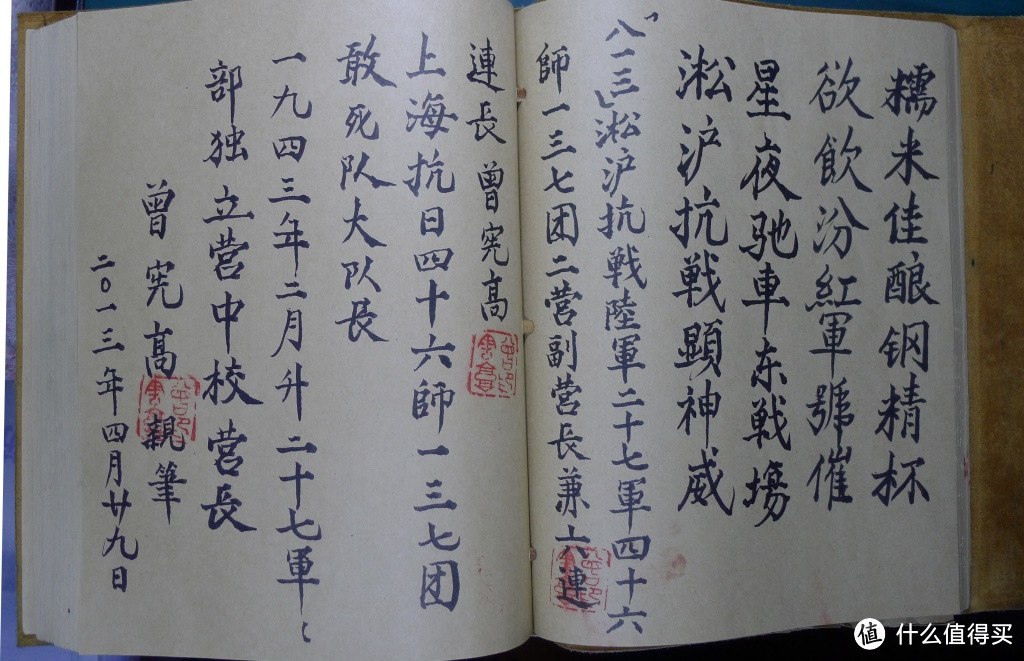 糯米佳酿钢精杯
欲飲汾紅軍號催
星夜驰車东戦場
淞沪抗戦顯神威
「八一三」淞沪抗戦陸軍二十七軍四十六
師一三七团二营副营長兼六連
連長 曾宪高
上海抗日四十六師一三七团
敢死队大队長
一九四三年二月升二十七軍
部独立营中校营長
曾宪高親筆
二〇一三年四月廿九日
值 什么值得买